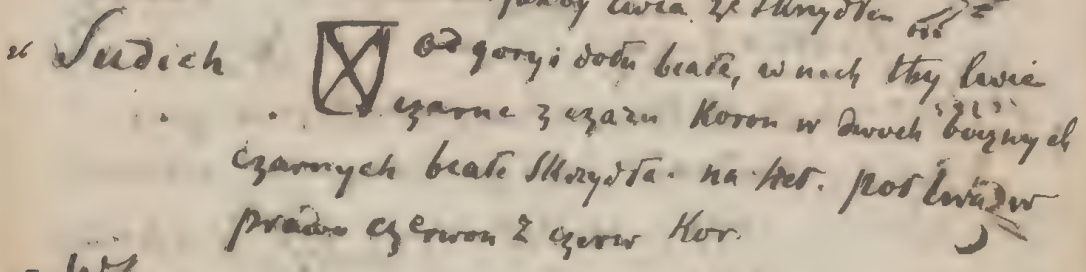 lwia ze skrzydłem
26 Sudich od gory i dołu białe, w nich łby lwie
czarne z czarn Koron w dwoch bocznych
czarnych białe Skrzydła. na heł. poł lwa w
prawo czerwon z czerw Kor.